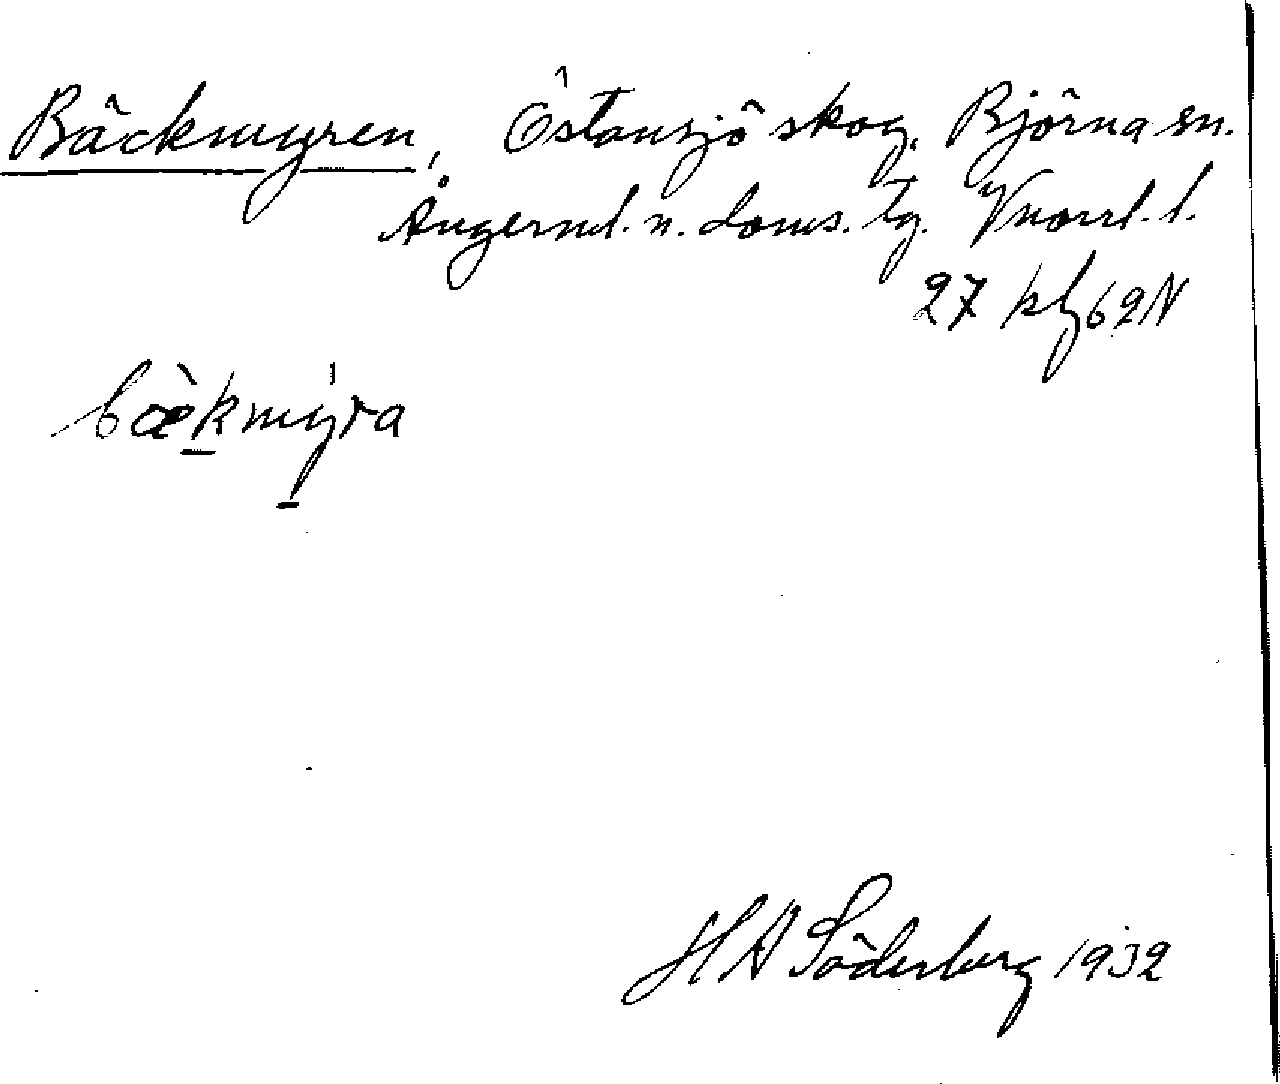 Bäckmyren, Östansjö skog. Björna sn.
Ångerml. n. doms. tg. Vnorrl. l.
27 kbl 62 N
bæ̀kmýra
H A Söderberg 1932